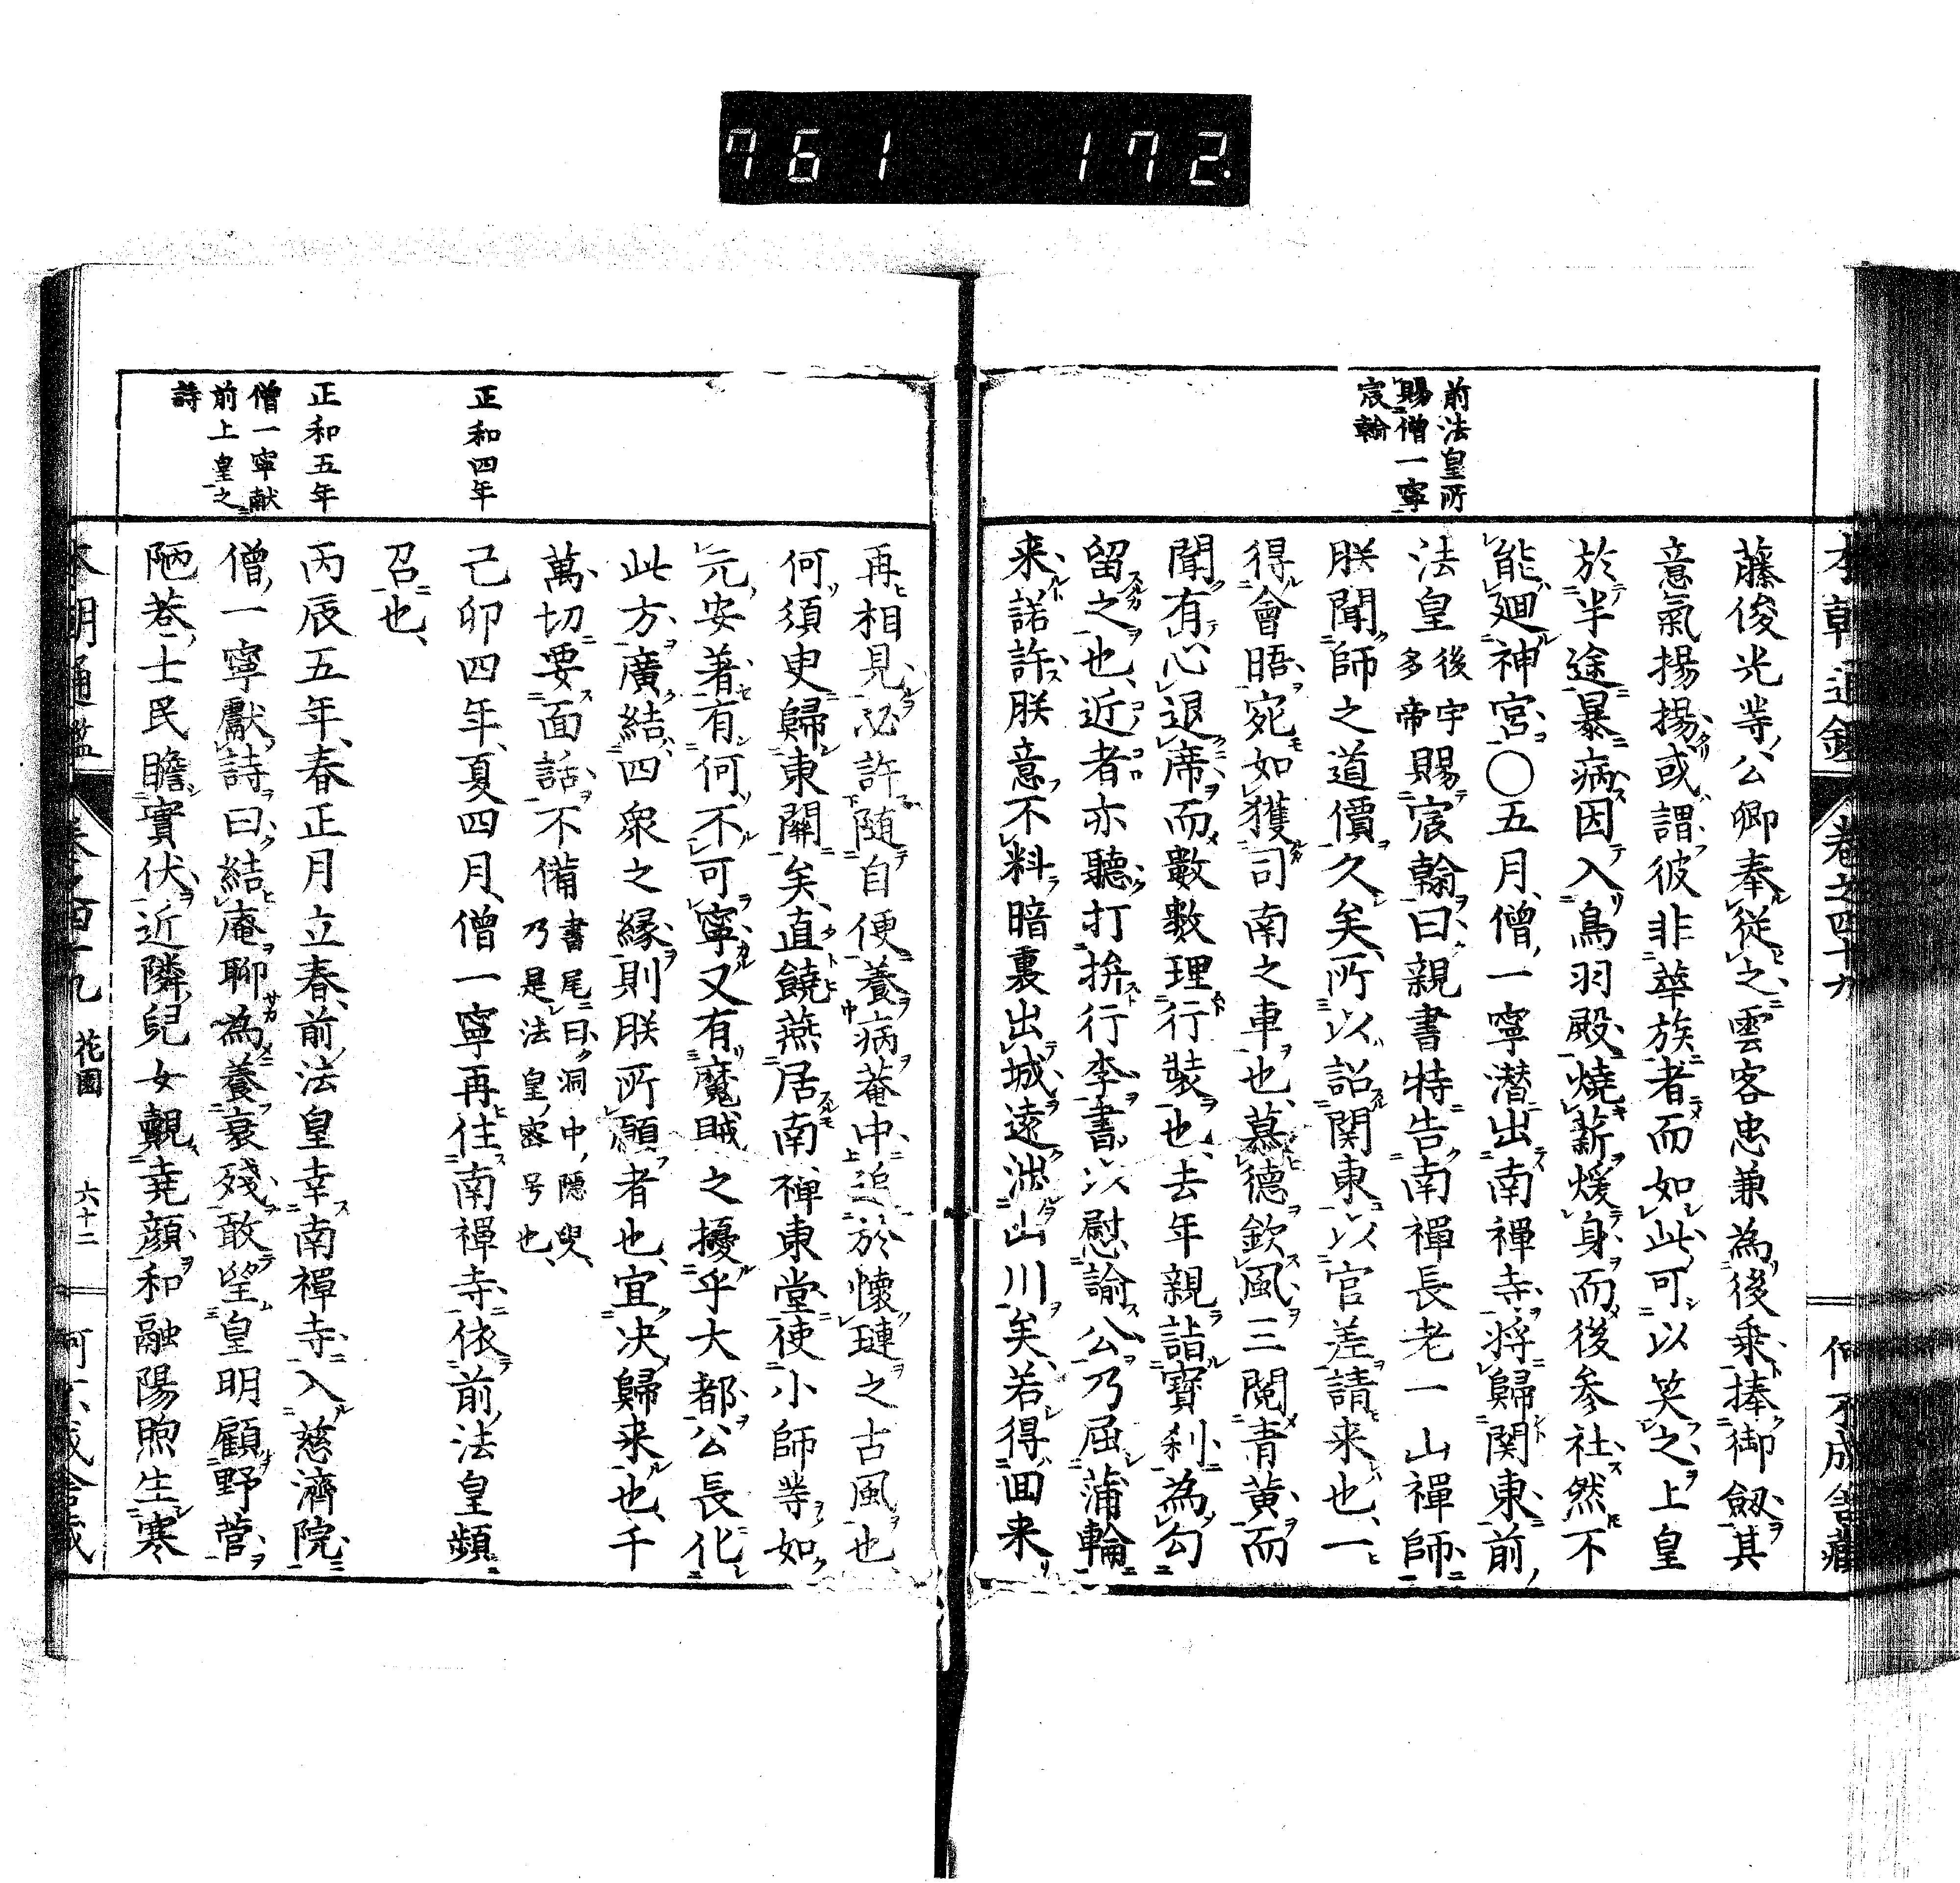 761 172.
本朝通鑑 卷之四十九
前法皇所
賜僧一寧
宸翰
藤俊光等公卿奉從之雲客忠兼為後乘捧御劔其
意氣揚揚或謂彼非華族者而如此可以笑之上皇
於半途暴病因入鳥羽殿燒薪煖身而後参社然不
能廻神宮〇五月僧一寧潜出南禅寺将歸関東前
法皇後宇多帝賜宸翰曰親書特告南禪長老一山禪師
朕聞師之道價久矣所以詔関東以官差請来也一
得會晤宛如獲司南之車也慕德欽風三閲青黄而
聞有心退席而數數理行裝也去年親詣寶刹為勾
留之也近者亦聽打拚行李書以慰諭公乃屈蒲輪
来諾許朕意不料暗裏出城遠出山川矣若得回来
再相見必許随自便養病菴中追於懐璉之古風也
何須叓歸東關矣直饒燕居南禅東堂使小師等如
元安著有何不可寧又有魔賊之擾乎大都公長化
此方廣結四衆之縁則朕所願者也宜决歸来也千
萬切要面話不備書尾曰洞中隠叟
乃是法皇密号也
正和四年
己卯四年夏四月僧一寧再住南禪寺依前法皇頻
召也
正和五年
丙辰五年春正月立春前法皇幸南禪寺入慈濟院
僧一寧献
前上皇之
詩
僧一寧獻詩曰結庵聊為養衰殘敢望皇明顧野菅
陋巷士民瞻實伏近隣兒女覩堯顔和融陽煦生寒
花園 六十二